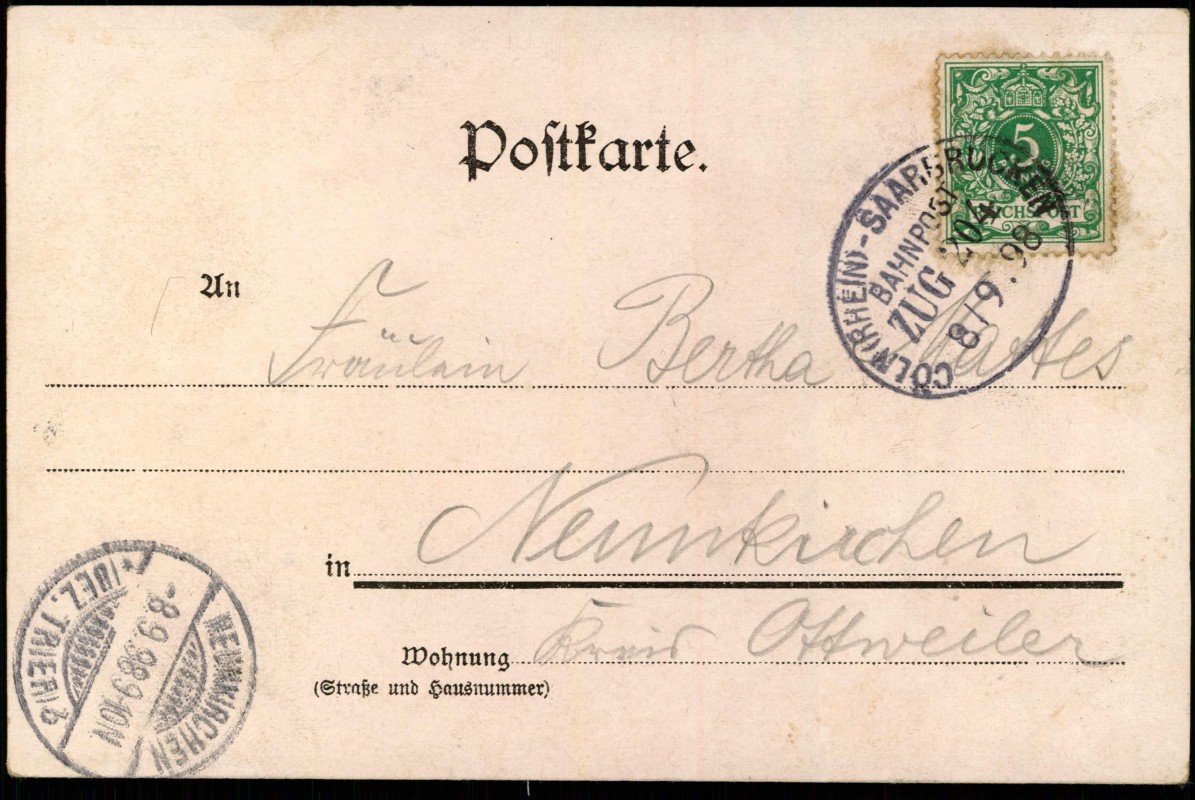 Postkarte.
5
REICHSPOST
CÖLN(RHEIN)-SAARBRÜCKEN
BAHNPOST
ZUG 204
8/9.98
An
Fräulein Bertha Mattes
in Neunkirchen
Wohnung Kreis Ottweiler
(Straße und Hausnummer)
NEUNKIRCHEN
-8.9.98.9-10N
* (BEZ. TRIER) b